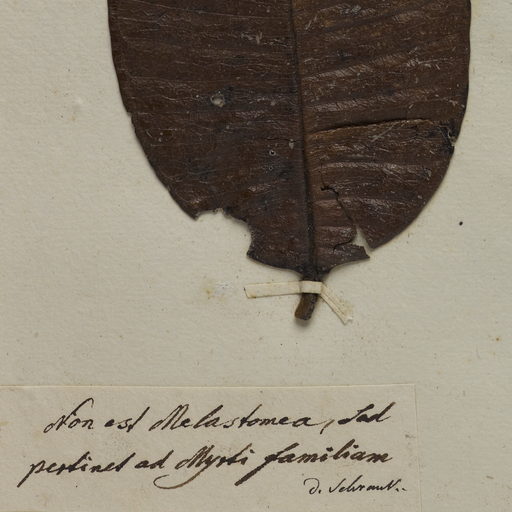 Non est Melastomea, sed
pertinet ad Myrti familiam
d. Schrank.